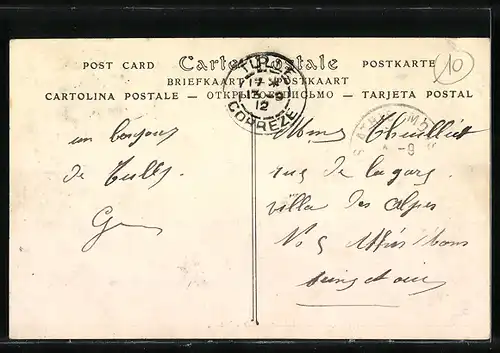 POST CARD Carte Postale POSTKARTE
BRIEFKAART — POSTKAART
CARTOLINA POSTALE — ОТКРЫТОЕ ПИСЬМО — TARJETA POSTAL
10
TULLE
17 *
13 - 9
12
CORREZE
un bonjour
de Tulle
Mme Thuillier
rue de la gare
villa des Alpes
No 5 Athis Mons
Seine et Oise